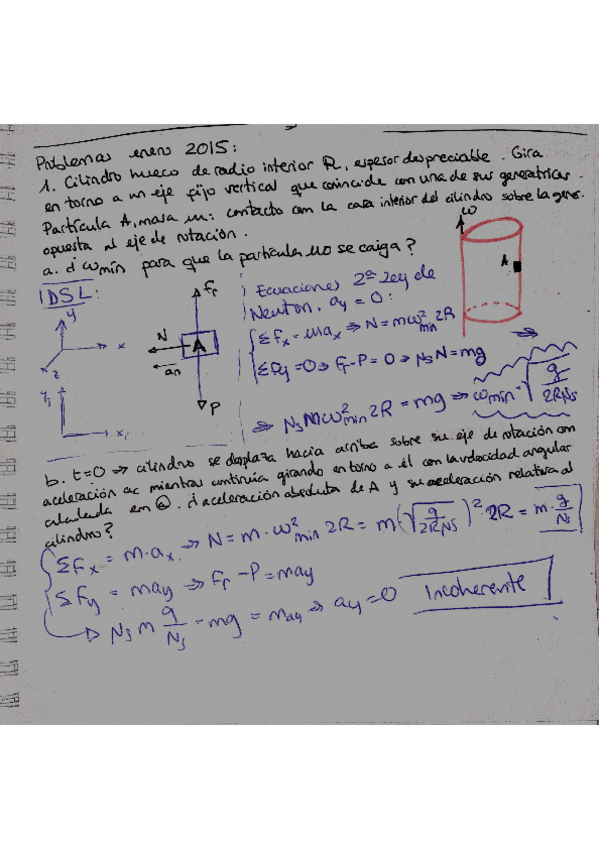 Problemas enero 2015:
1. Cilindro hueco de radio interior R, espesor despreciable. Gira
en torno a un eje fijo vertical que coincide con una de sus generatrices.
Partícula A, masa m: contacto con la cara interior del cilindro sobre la gener.
opuesta al eje de rotación.
a. ¿ωmín para que la partícula no se caiga?
DSL:
y
x
z
y1
x1
Fr
N
A
an
P
Ecuaciones 2ª Ley de
Newton, ay = 0:
ΣFx = max ⇒ N = mω²min 2R
ΣFy = 0 ⇒ Fr - P = 0 ⇒ Ns N = mg
⇒ Ns mω²min 2R = mg ⇒ ωmin = √(g/2RNs)
ω
A
b. t=0 ⇒ cilindro se desplaza hacia arriba sobre su eje de rotación con
aceleración ac mientras continúa girando en torno a él con la velocidad angular
calculada en a. ¿aceleración absoluta de A y su aceleración relativa al
cilindro?
ΣFx = m·ax ⇒ N = m·ω²min 2R = m(√(g/2RNs))²·2R = m·g/Ns
ΣFy = may ⇒ Fr - P = may
Ns m g/Ns - mg = may ⇒ ay = 0 Incoherente